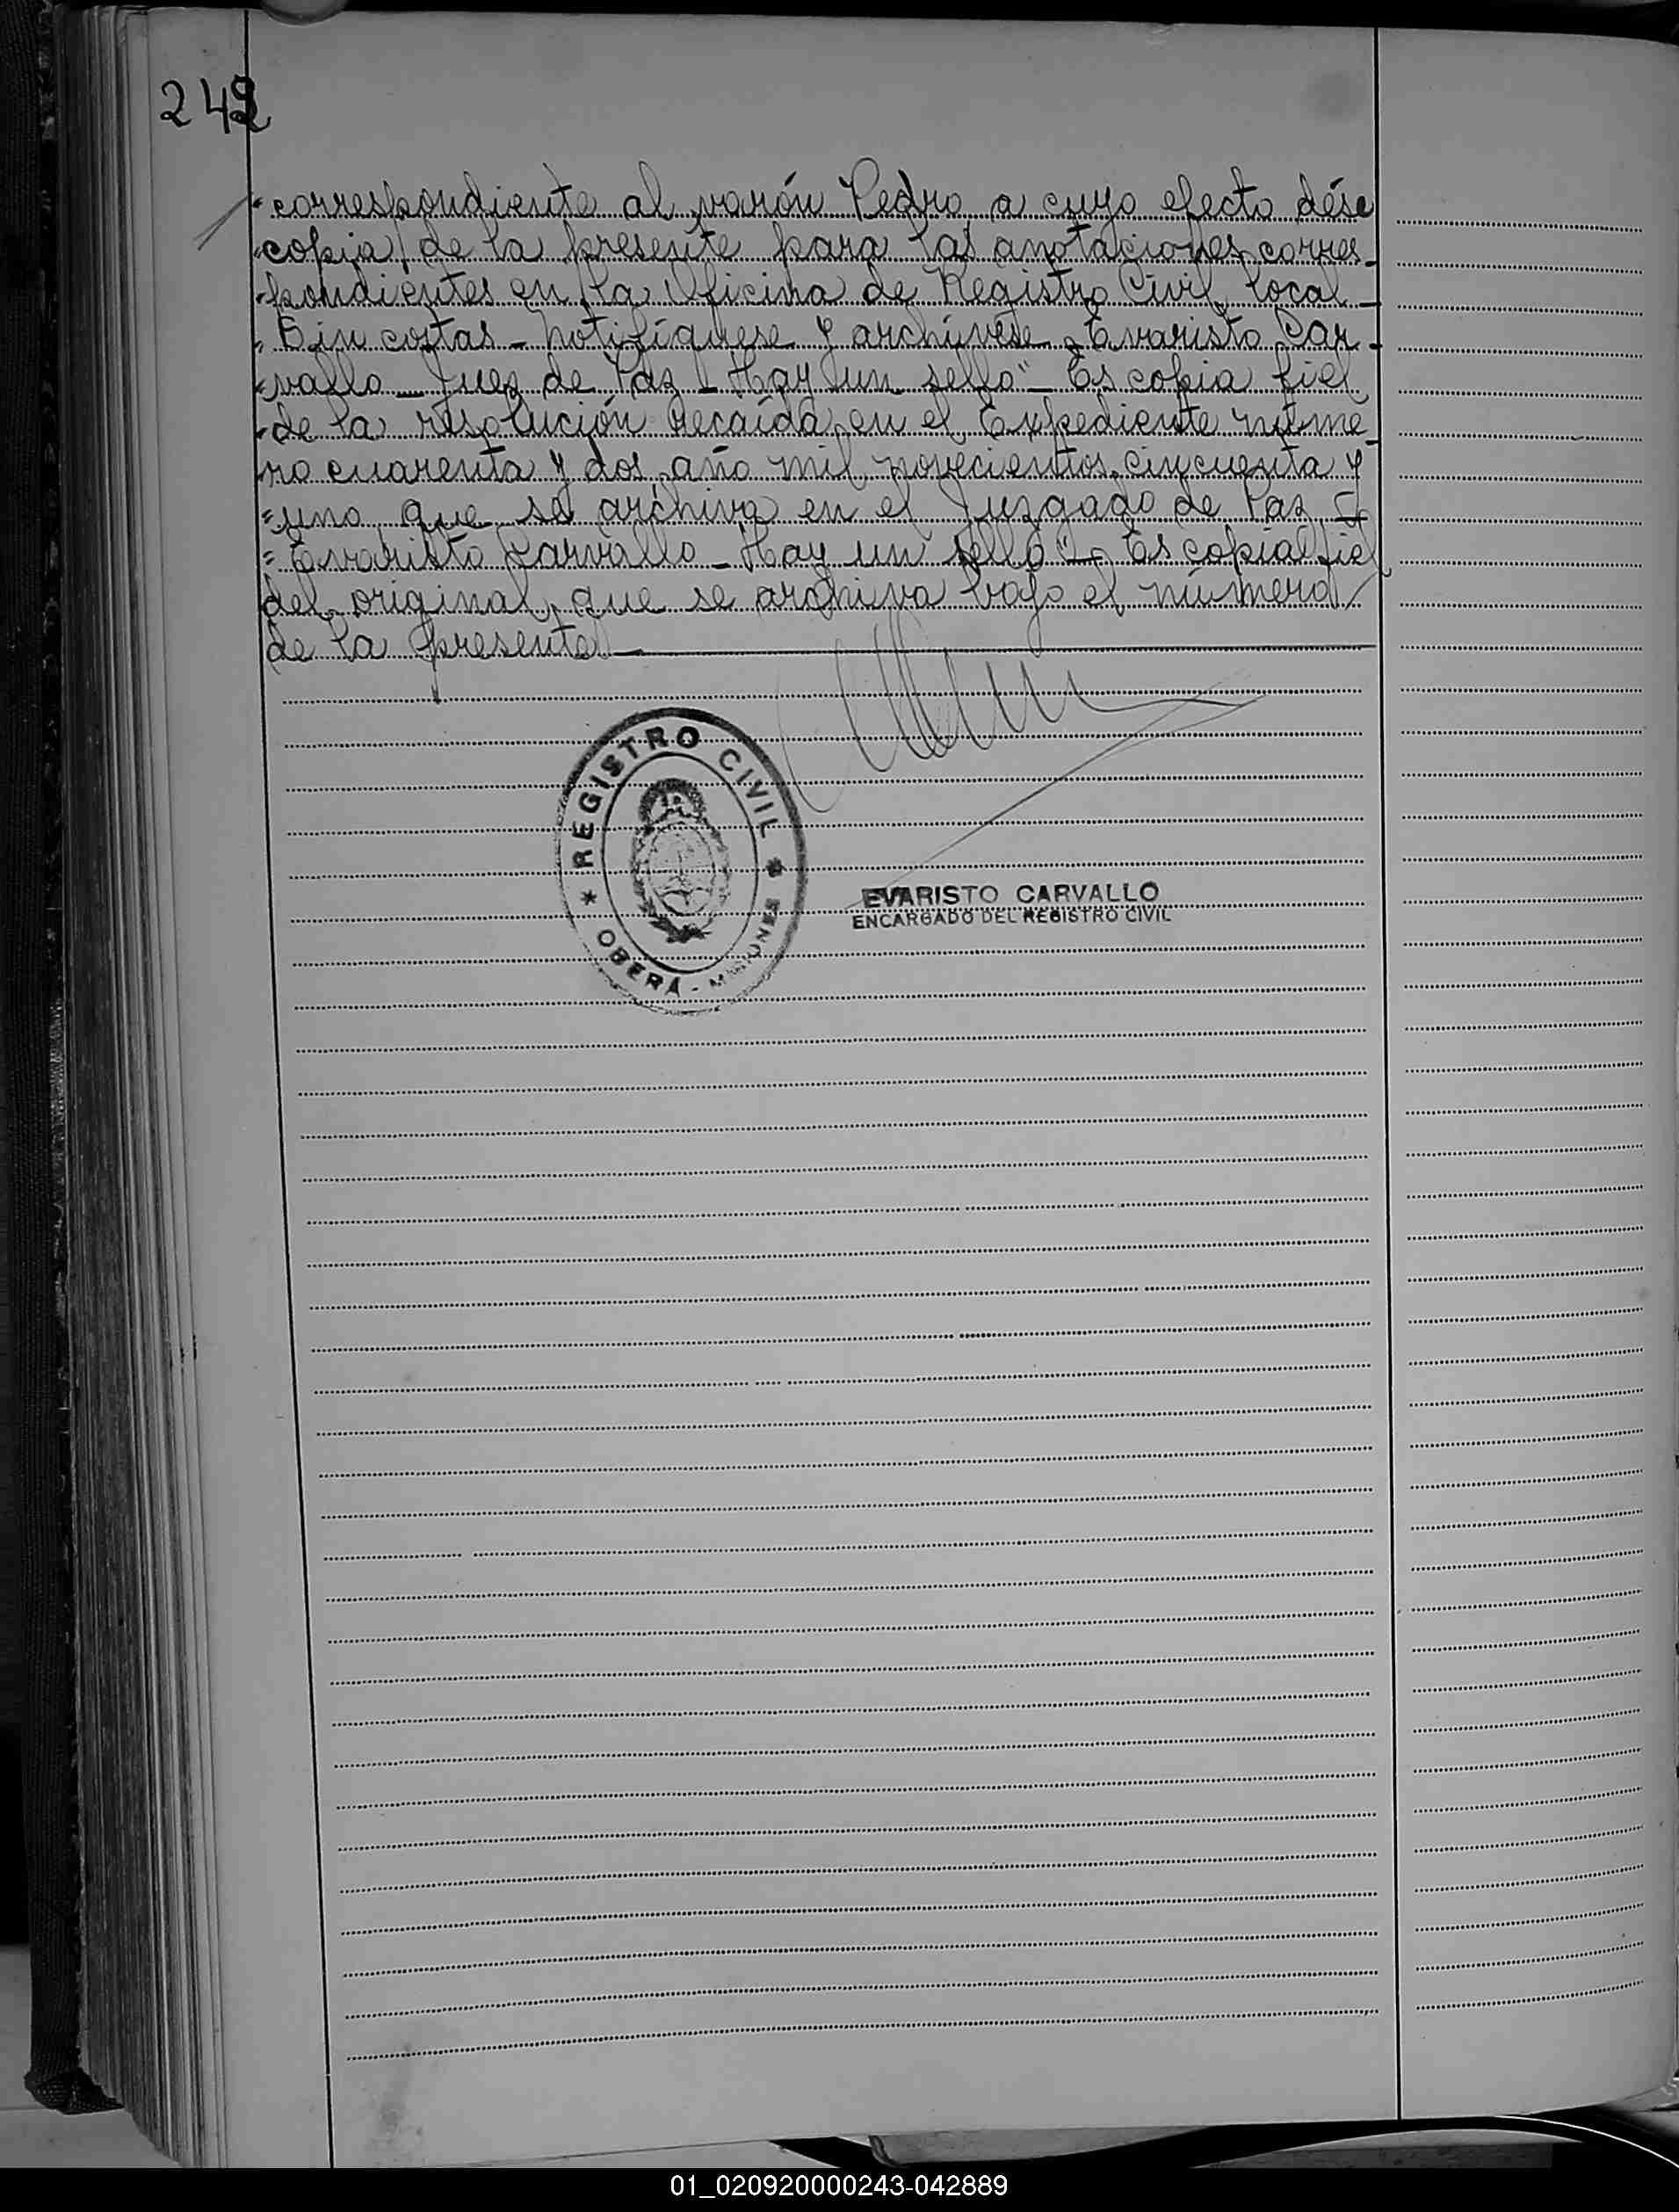 242
"correspondiente al varón Pedro a cuyo efecto dése
"copia de la presente para las anotaciones corres-
"pondientes en la Oficina de Registro Civil local -
" Sin costas - Notifíquese y archívese - Evaristo Car-
"vallo - Juez de Paz - Hay un sello" - Es copia fiel
"de la resolución recaída en el Expediente núme-
ro cuarenta y dos, año mil novecientos cincuenta y
"uno que se archiva en el Juzgado de Paz -
" Evaristo Carvallo - Hay un sello" - Es copia fiel
del original, que se archiva bajo el número
de la presente
REGISTRO CIVIL
OBERÁ - MISIONES
EVARISTO CARVALLO
ENCARGADO DEL REGISTRO CIVIL
01_020920000243-042889